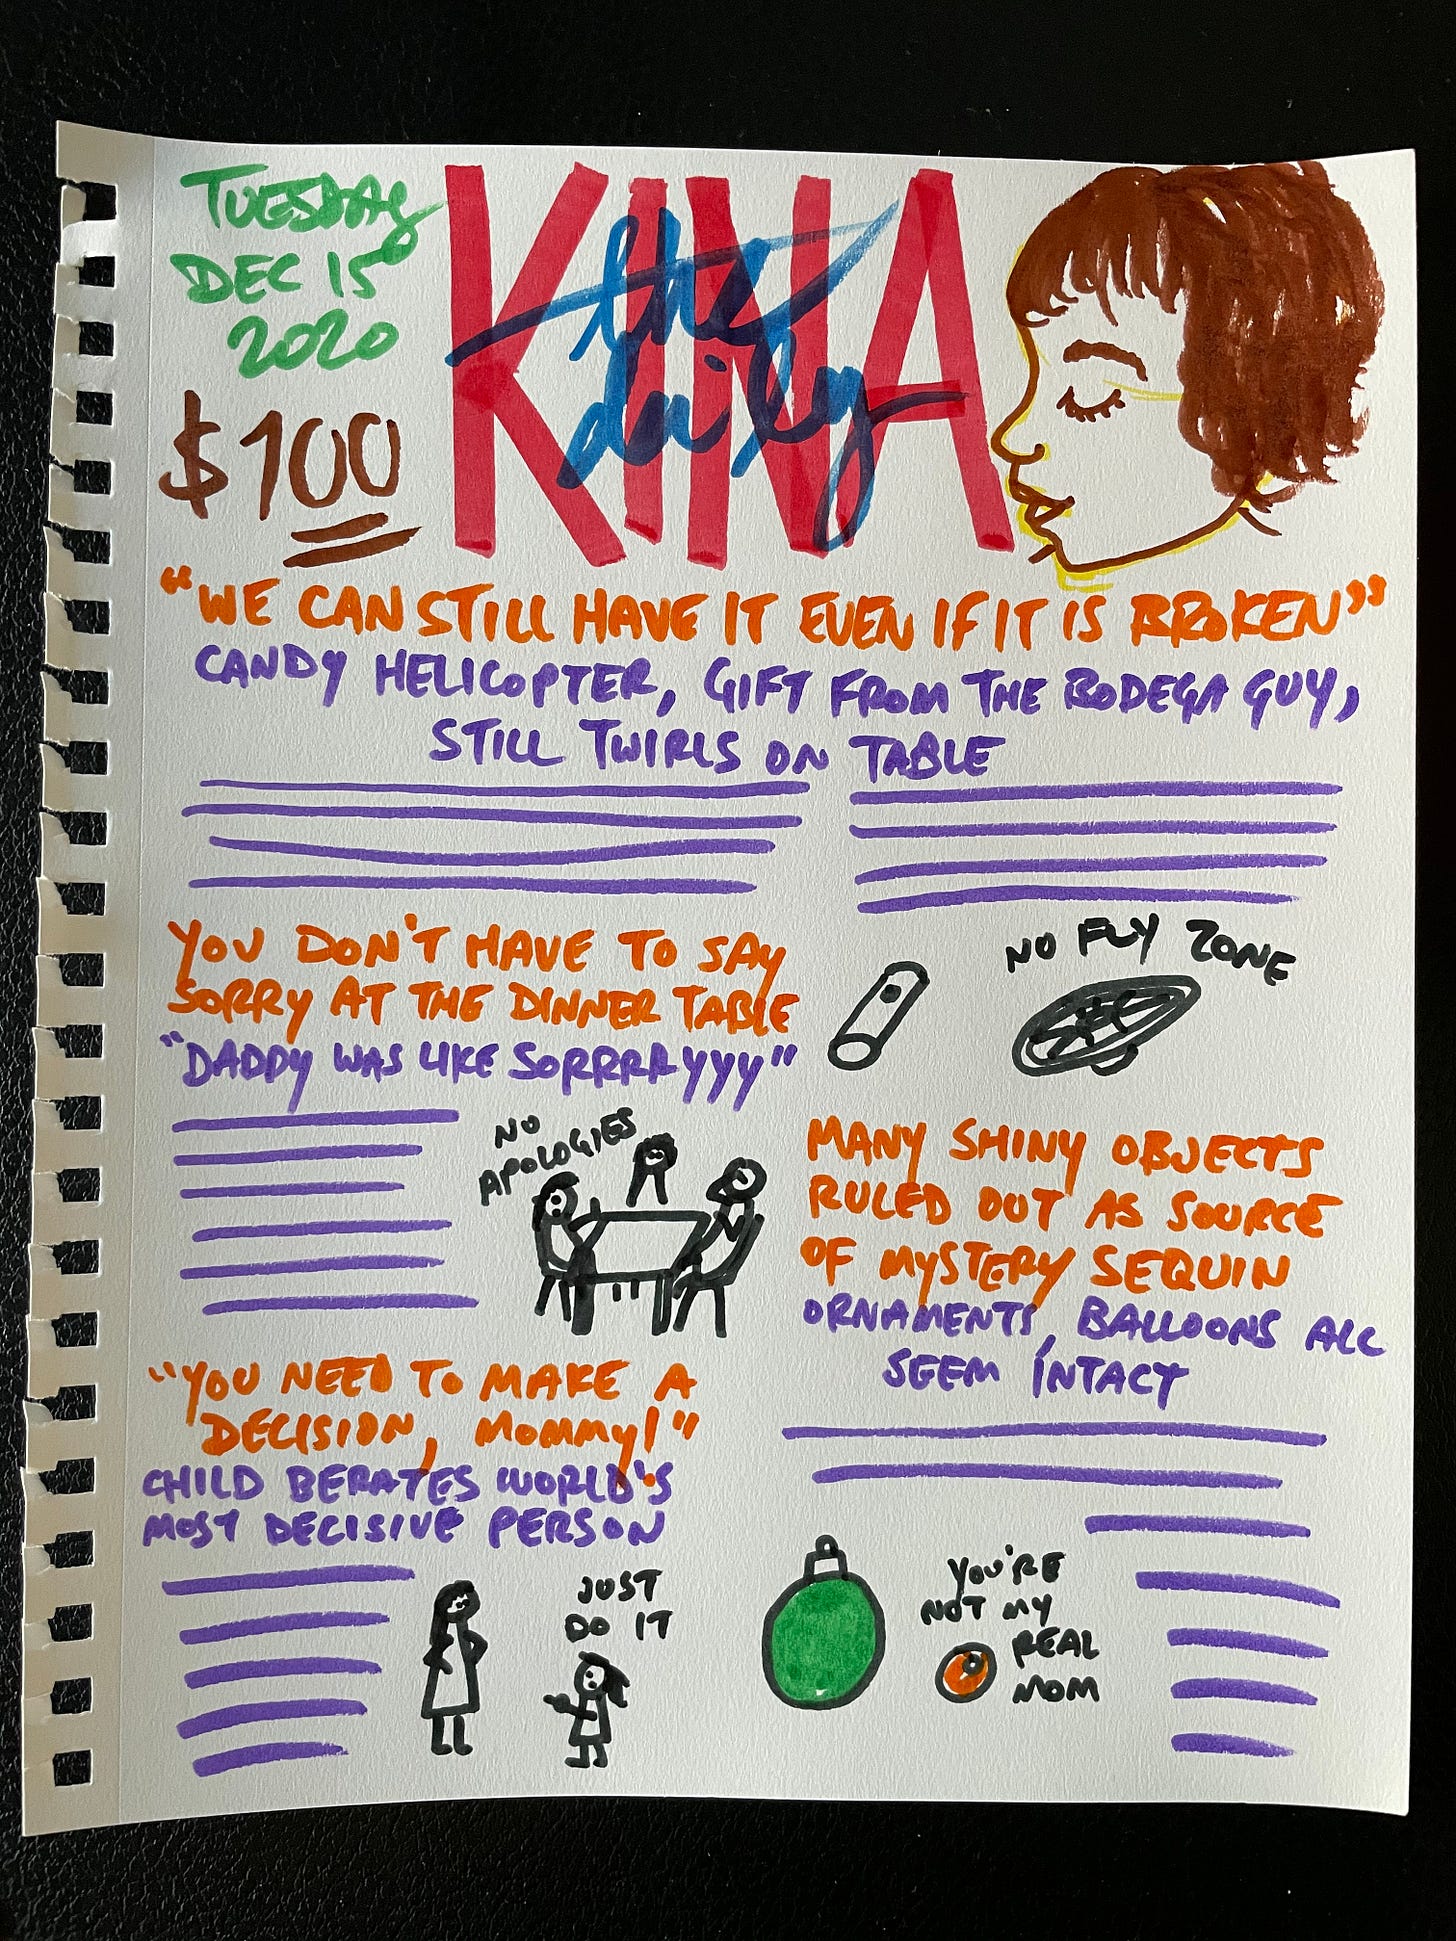 TUESDAY
DEC 15
2020
$100
KINA
the
daily
"WE CAN STILL HAVE IT EVEN IF IT IS BROKEN"
CANDY HELICOPTER, GIFT FROM THE BODEGA GUY,
STILL TWIRLS ON TABLE
YOU DON'T HAVE TO SAY
SORRY AT THE DINNER TABLE
"DADDY WAS LIKE SORRRRYYYY"
NO
APOLOGIES
"YOU NEED TO MAKE A
DECISION, MOMMY!"
CHILD BERATES WORLD'S
MOST DECISIVE PERSON
JUST
DO IT
NO FLY ZONE
MANY SHINY OBJECTS
RULED OUT AS SOURCE
OF MYSTERY SEQUIN
ORNAMENTS, BALLOONS ALL
SEEM INTACT
YOU'RE
NOT MY
REAL
MOM